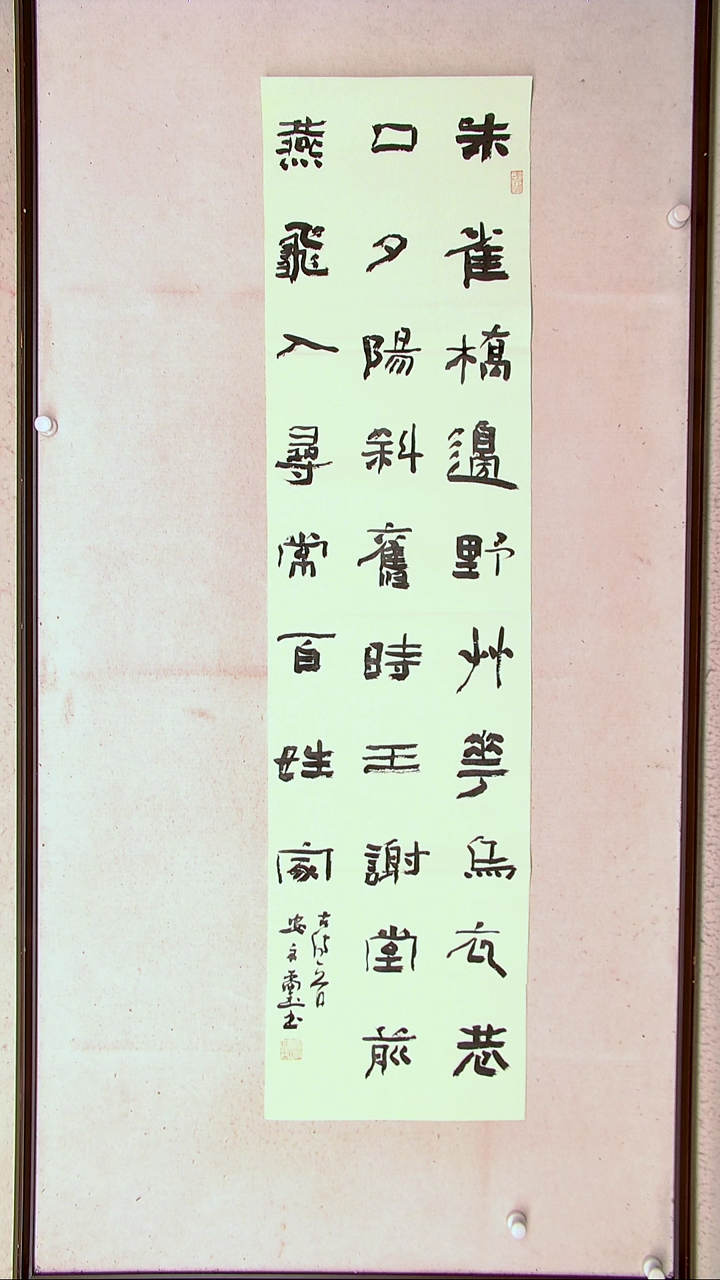 朱雀橋邊野艸花烏衣巷
口夕陽斜舊時王謝堂前
燕飛入尋常百姓家
古詩一首
安
書